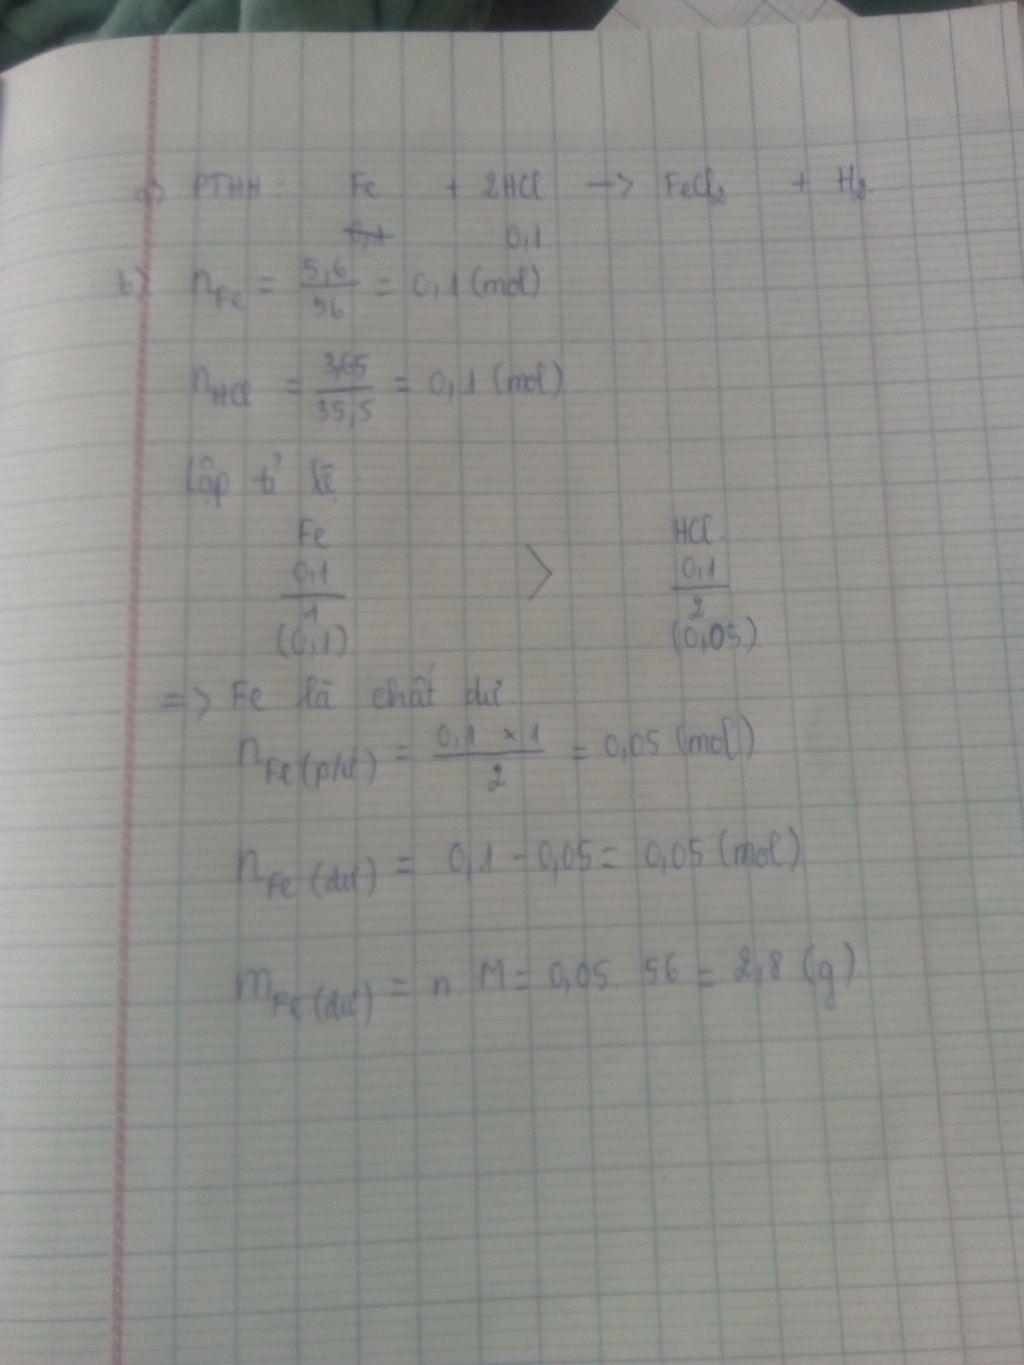 a) PTHH: Fe + 2HCl -> FeCl₂ + H₂
0,1 0,1
b) nFe = 5,6/56 = 0,1 (mol)
nHCl = 3,65/35,5 = 0,1 (mol)
Lập tỉ lệ
Fe HCl
0,1/1 > 0,1/2
(0,1) (0,05)
=> Fe là chất dư.
nFe (p/ư) = 0,1 × 1/2 = 0,05 (mol)
nFe (dư) = 0,1 - 0,05 = 0,05 (mol)
mFe (dư) = n. M = 0,05. 56 = 2,8 (g)